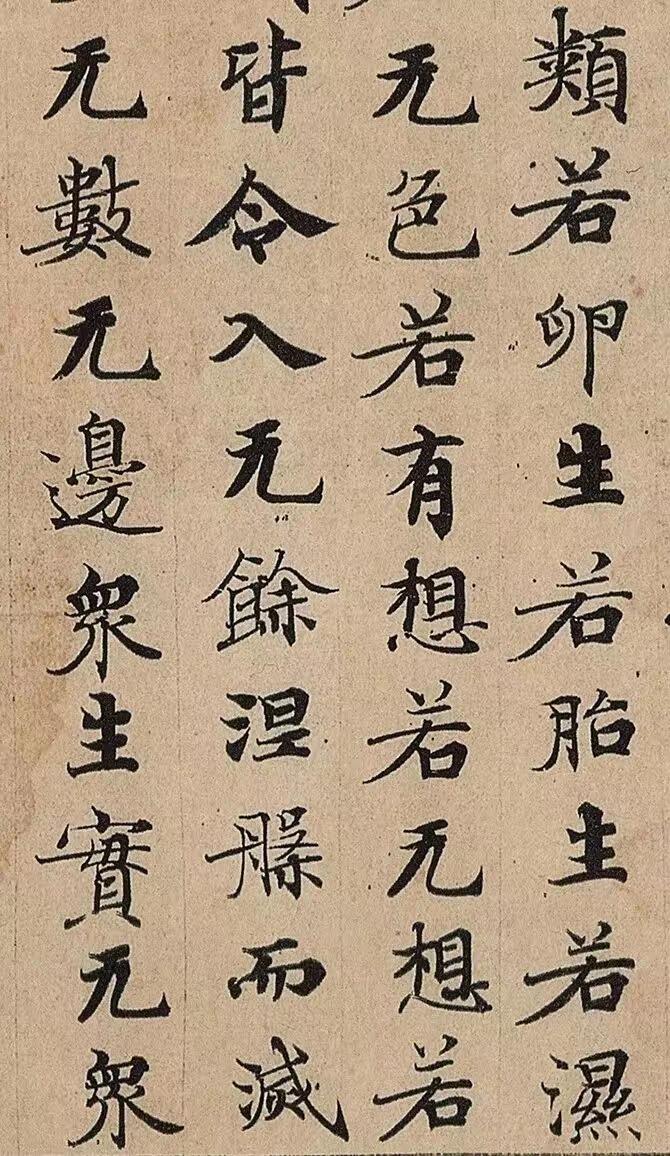 類若卵生若胎生若濕
无色若有想若无想若
皆令入无餘涅槃而滅
无數无邊衆生實无衆